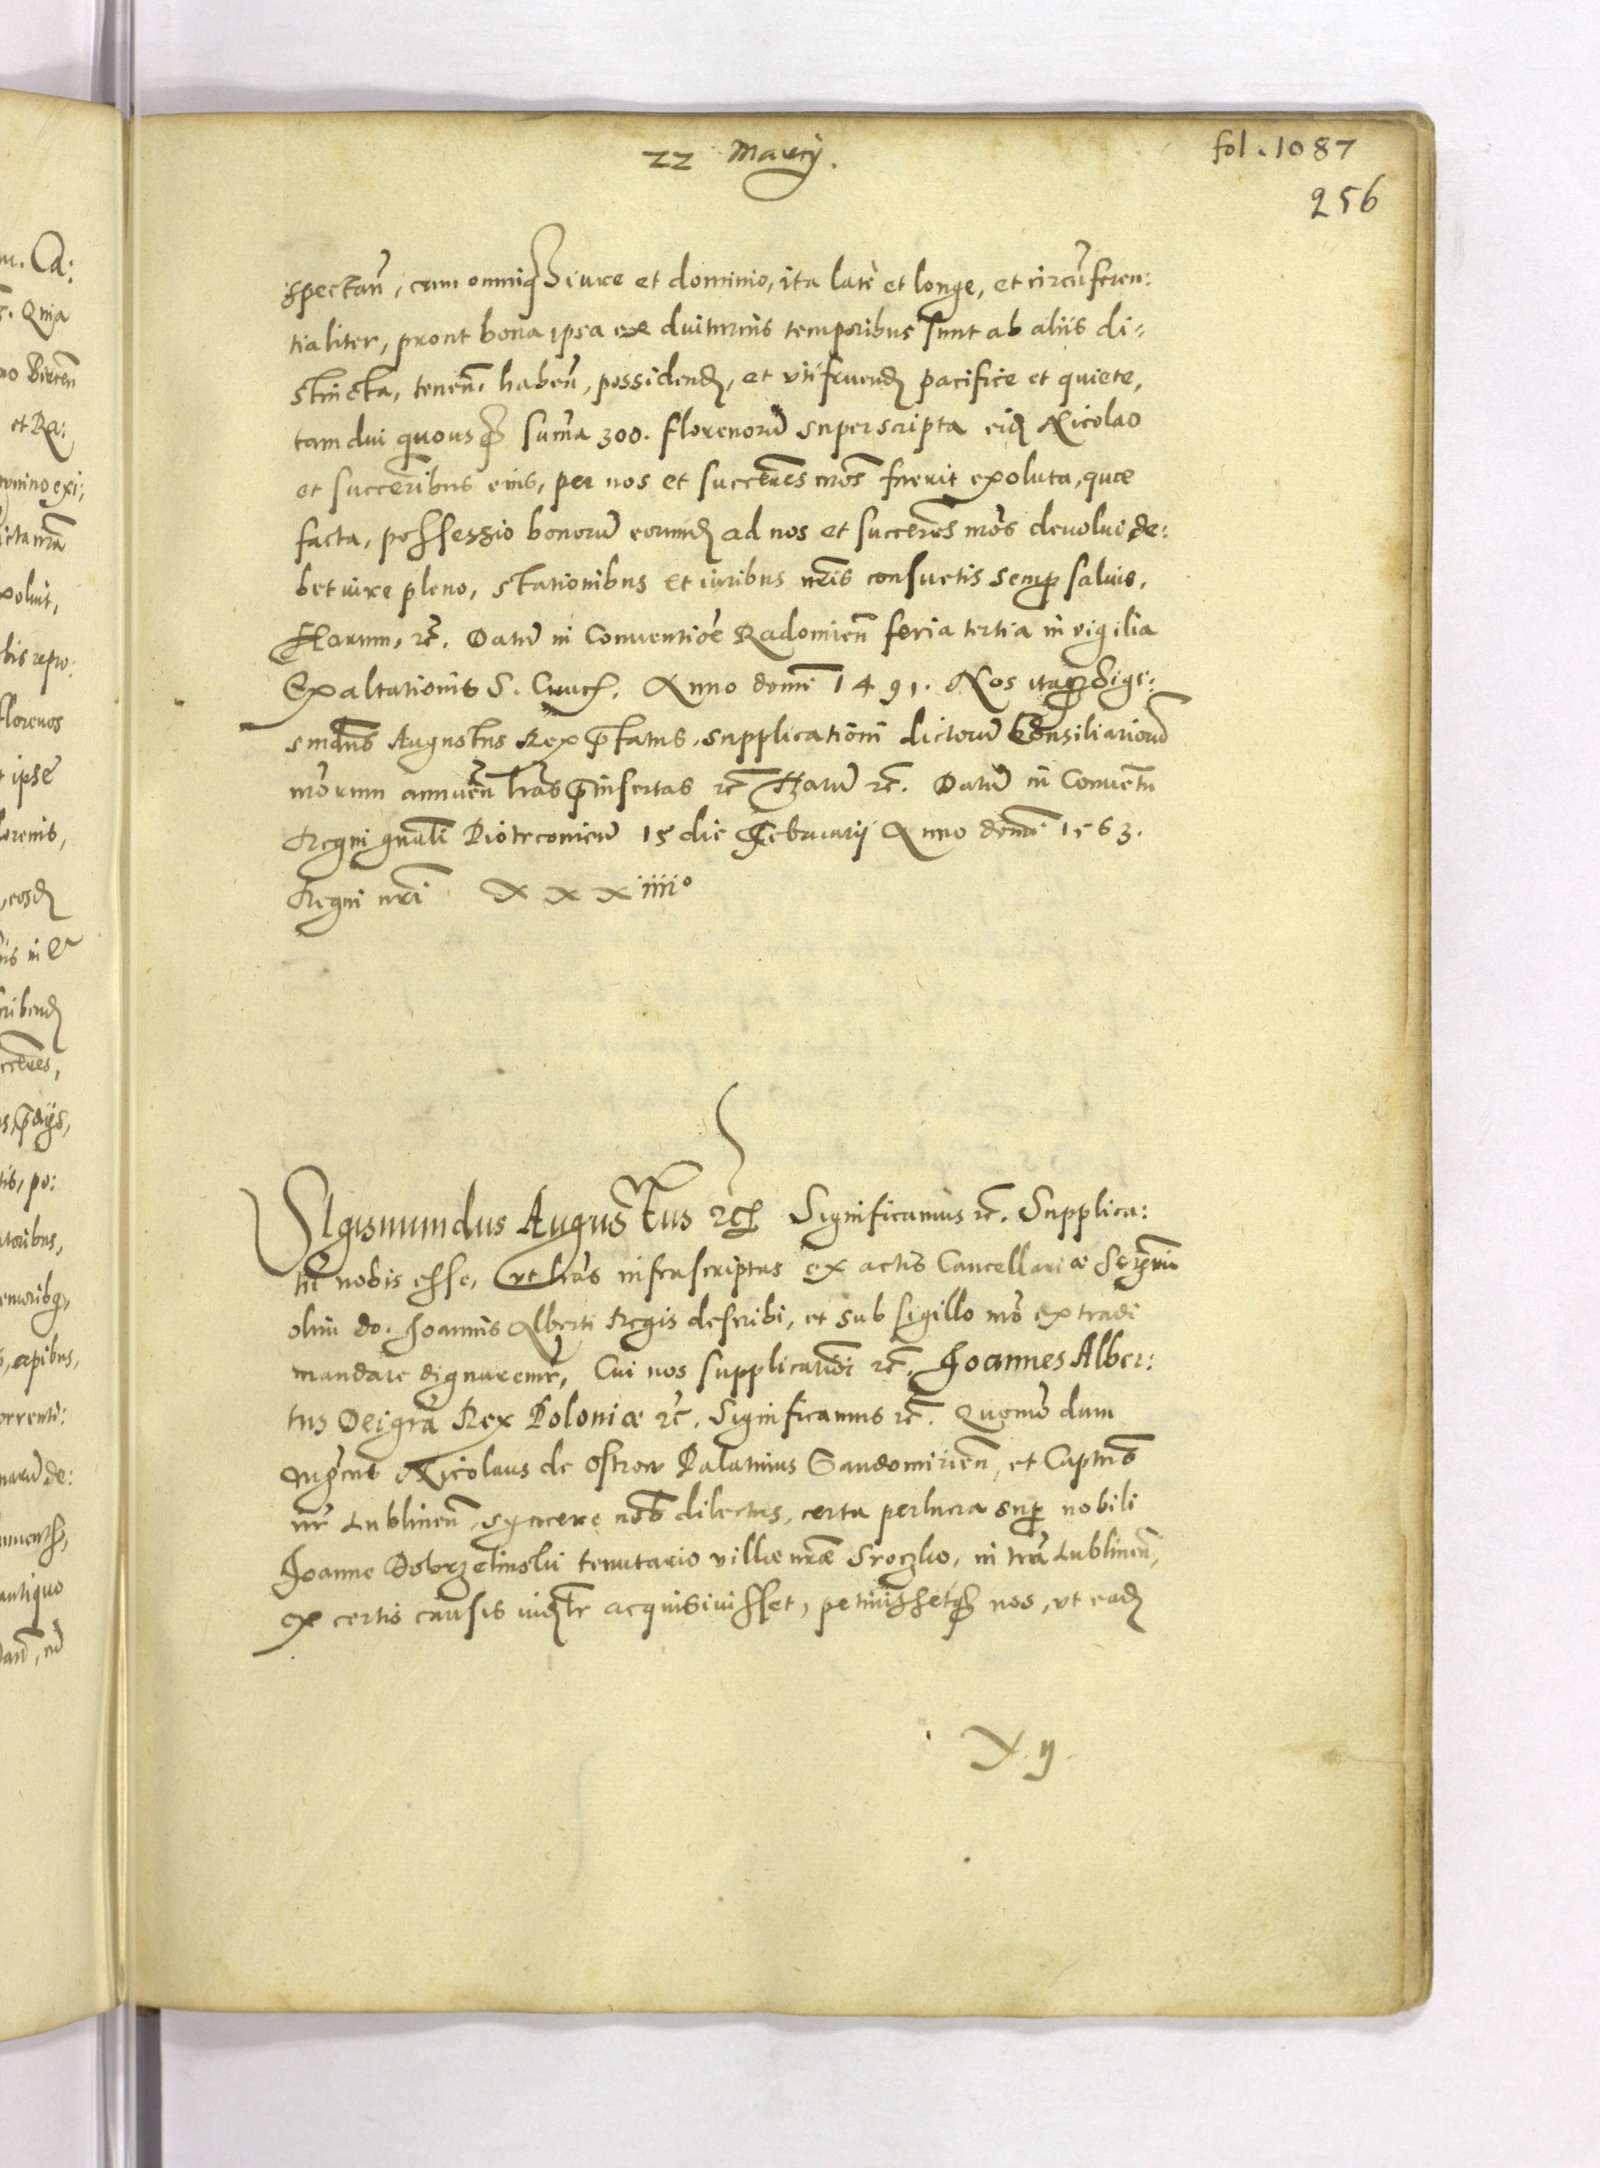 22 Marcij.
fol. 1087
256
spectan̄, cum omniq̄ iure et dominio, ita latè et longe, et circūferen:
tialiter, prout bona ipsa ex duiturnis temporibus sunt ab aliis di:
stincta, tenen̄, haben̄, possidend, et vtifruend pacifice et quiete,
tam diu quousq̄ sum̄a 300. florenorū superscripta eid Nicolao
et succerībus eius, per nos et succeres nr̄os fuerit exoluta, quæ
facta, possessio bonorū eorund ad nos et succeres nr̄os deuolui de:
bet iure pleno, stationibus et iuribus nr̄is consuetis semp saluis.
Harum, rc̄. Datū in Conuentiōe Radomien̄ feria tertia in vigilia
Exaltationis S. Cruc. Anno domī 1491. Nos itaq̄ Sigi:
smdūs Augustus Rex p̄fatus, supplicationi dictorū Consiliariorū
nr̄orum annuen̄ lr̄as p̄insertas rc̄ Harū rc̄. Datū in Conuentu
Regni gn̄ali Piotrcouien̄ 15 die Februarij Anno domī 1563.
Regni nr̄i xxxiiii°
Sigismundus Augustus rc̄ Significamus rc̄. Supplica:
tū nobis esse, vt lr̄as infrascriptas ex actis Cancellariæ Serm̄i
olim do. Joannis Alberti Regis describi, et sub sigillo nr̄o extradi
mandare dignaremr̄, Cui nos supplicatiōi rc̄, Joannes Alber:
tus Dei gr̄a Rex Poloniæ rc̄. Significamus rc̄. Quomō dum
mgc̄us Nicolaus de Ostrow Palatinus Sandomirien̄, et Captn̄s
nr̄ Lublinen̄, syncere nōb dilectus, certa perlucra sup nobili
Joanne Dobrzelinski tenutario villæ nr̄æ Sroczko, in tr̄a Lublinen̄,
ex certis causis iudltr̄ acquisiuisset, petiuissetq̄ nos, vt ead
X. ij.